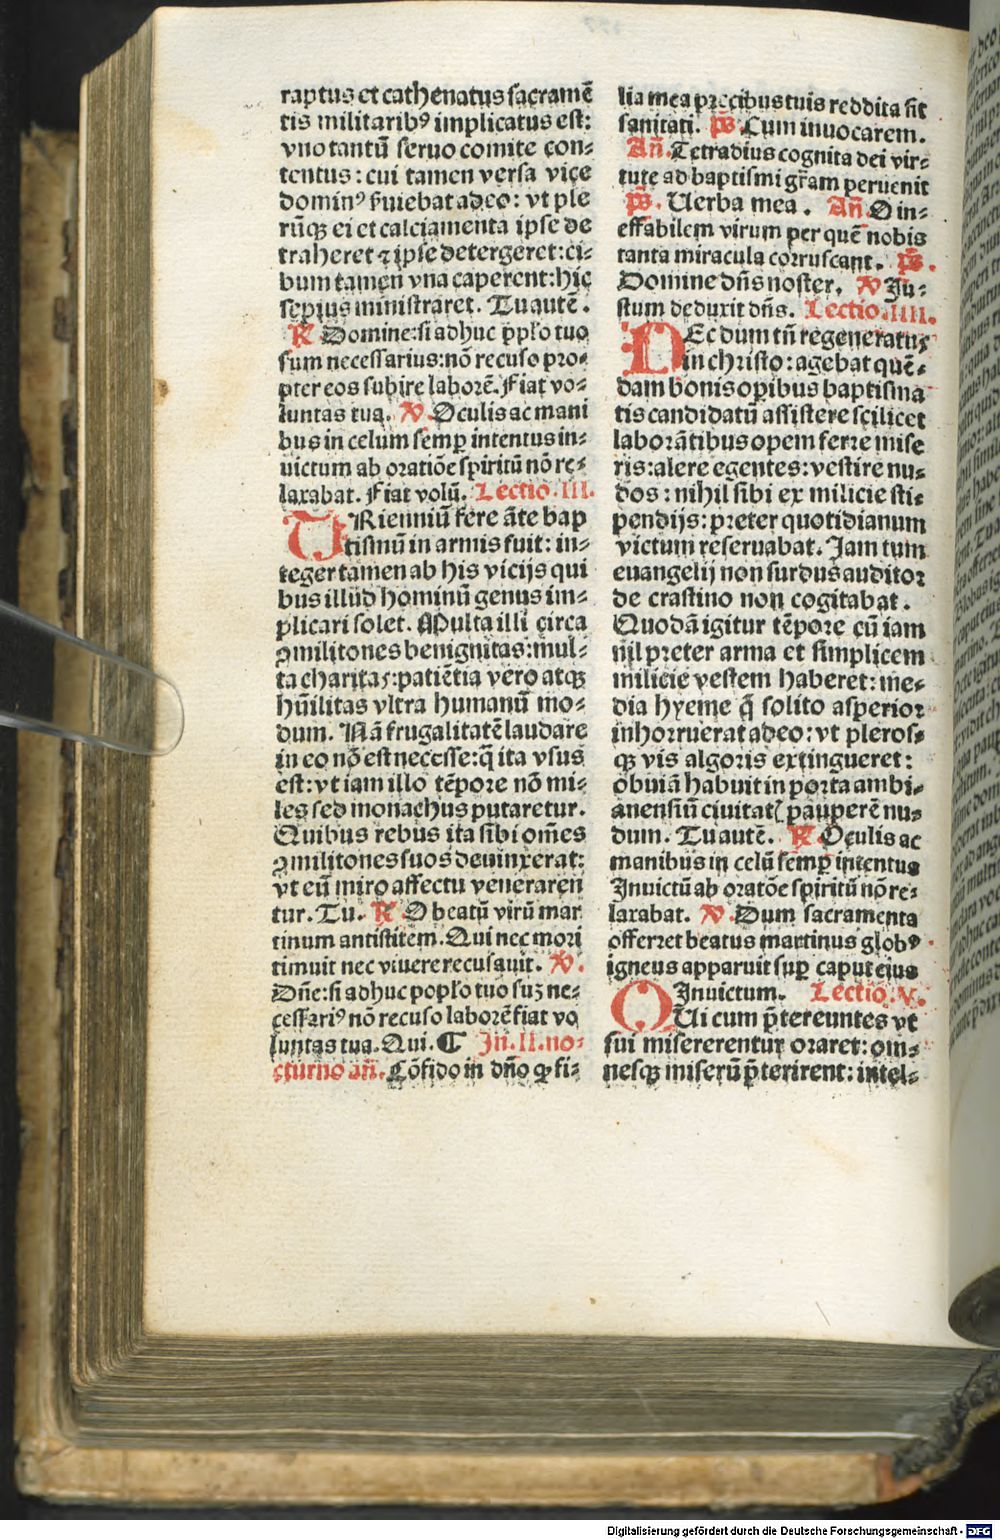 raptus et cathenatus sacramē
tis militaribꝰ implicatus est:
vno tantū seruo comite con⸗
tentus: cui tamen versa vice
dominꝰ ẜuiebat adeo: vt ple
rūqꝫ ei et calciamenta ipse de
traheret ⁊ ipse detergeret: ci⸗
bum tamen vna caperent: hic
sepius ministraret. Tu autē.
℟ Domine: si adhuc ppl̄o tuo
sum necessarius: nō recuso pro⸗
pter eos subire laborē. Fiat vo⸗
luntas tua. ℣. Oculis ac mani
bus in celum semꝑ intentus in⸗
uictum ab oratiōe spiritū nō re⸗
laxabat. Fiat volū. Lectio. III.
TRienniū fere āte bap
tismū in armis fuit: in⸗
teger tamen ab his vicijs qui
bus illud hominū genus im⸗
plicari solet. Multa illi circa
ꝯmilitones benignitas: mul⸗
ta charitas: patiētia vero atqꝫ
hūilitas vltra humanū mo⸗
dum. Nā frugalitatē laudare
in eo nō est necesse: q̄ ita vsus
est: vt iam illo tēpore nō mi⸗
les sed monachus putaretur.
Quibus rebus ita sibi om̄es
ꝯmilitones suos deuinxerat:
vt eū miro affectu veneraren
tur. Tu. ℟. O beatū virū mar
tinum antistitem. Qui nec mori
timuit nec viuere recusauit. ℣.
Dn̄e: si adhuc popl̄o tuo suꝫ ne⸗
cessariꝰ nō recuso laborē fiat vo
luntas tua. Qui. ¶ In. II. no⸗
cturno an̄. Cōfido in dn̄o ꝙ fi⸗
lia mea precibus tuis reddita sit
sanitati. p̄s. Cum inuocarem.
An̄. Tetradius cognita dei vir⸗
tute ad baptismi gr̄am peruenit
p̄s. Uerba mea. An̄. O in⸗
effabilem virum per quē nobis
tanta miracula corruscant. p̄s.
Domine dn̄s noster. ℣ Iu⸗
stum deduxit dn̄s. Lectio. IIII.
NEc dum tn̄ regeneratus
in christo: agebat quē⸗
dam bonis oꝑibus baptisma
tis candidatū assistere scilicet
laborātibus opem ferre mise
ris: alere egentes: vestire nu⸗
dos: nihil sibi ex milicie sti⸗
pendijs: preter quotidianum
victum reseruabat. Iam tum
euangelij non surdus auditor
de crastino non cogitabat.
Quodā igitur tēpore cū iam
nil preter arma et simplicem
milicie vestem haberet: me⸗
dia hyeme q̄ solito asperior
inhorruerat adeo: vt pleros⸗
qꝫ vis algoris extingueret:
obuiā habuit in porta ambi⸗
anensiū ciuitatꝭ pauperē nu⸗
dum. Tu autē. ℟. Oculis ac
manibus in celū semꝑ intentus
Inuictū ab oratōe spiritū nō re⸗
laxabat. ℣. Dum sacramenta
offerret beatus martinus globꝰ
igneus apparuit suꝑ caput eius
Inuictum. Lectio. V.
QUi cum p̄tereuntes vt
sui misererentur oraret: om⸗
nesqꝫ miserū p̄terirent: intel⸗
Digitalisierung gefördert durch die Deutsche Forschungsgemeinschaft - DFG